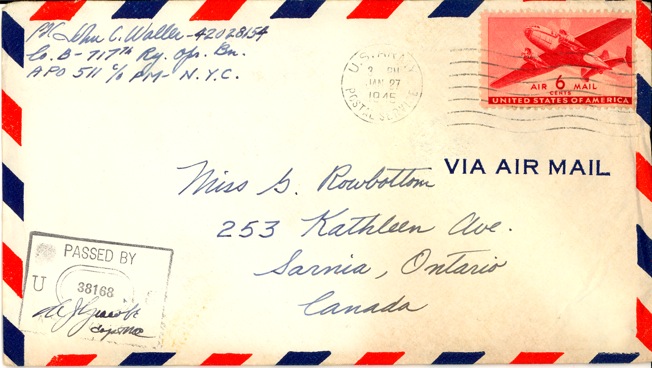 Pvt John C. Waller - 42028154
Co. B - 717th Ry. Op. Bn.
APO 511 c/o PM - N.Y.C.
U.S. ARMY
JAN 27
1945
POSTAL SERVICE
AIR 6 MAIL
CENTS
UNITED STATES OF AMERICA
VIA AIR MAIL
Miss G. Rowbottom
253 Kathleen Ave.
Sarnia, Ontario
Canada
PASSED BY
U
38168